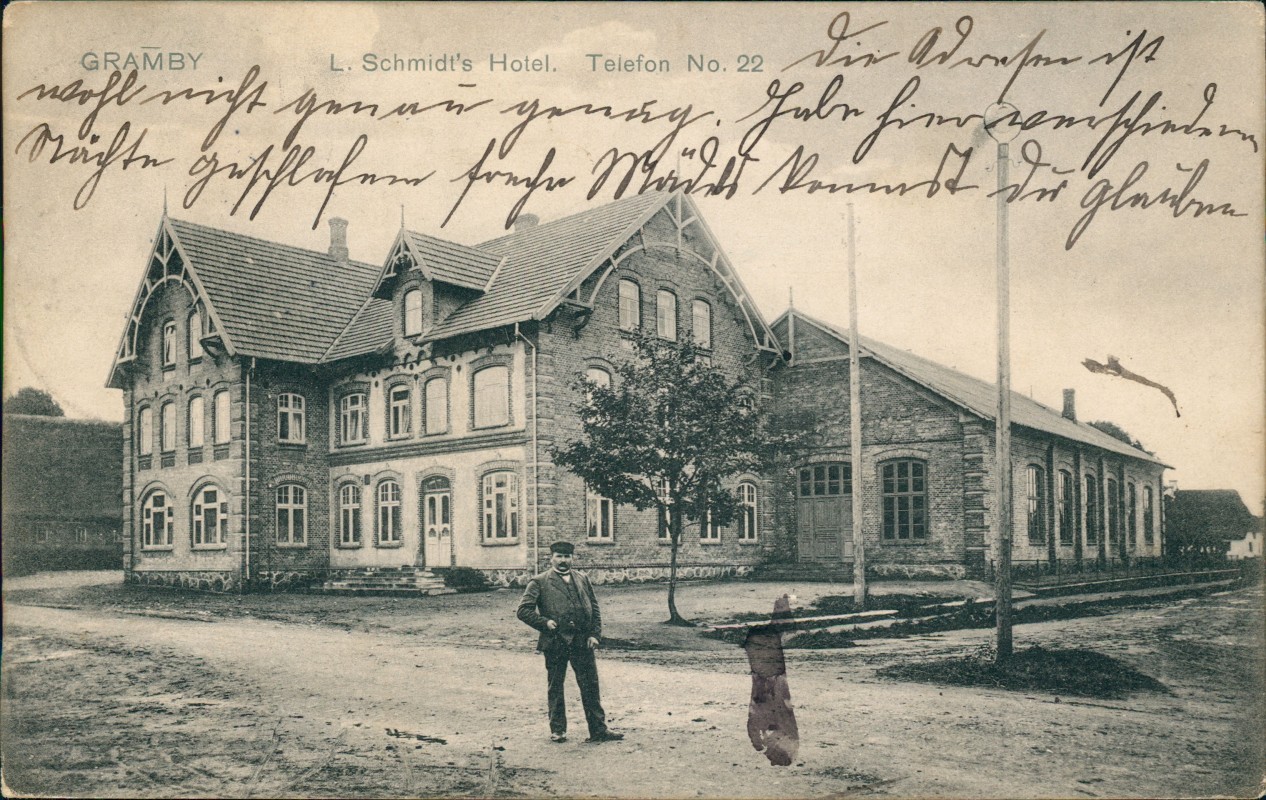 GRAMBY L. Schmidt's Hotel. Telefon No. 22 Die Adressen ist
wohl nicht genau genug. Habe hier verschiedene
Nächte geschlafen freche Mädels kannst du glauben